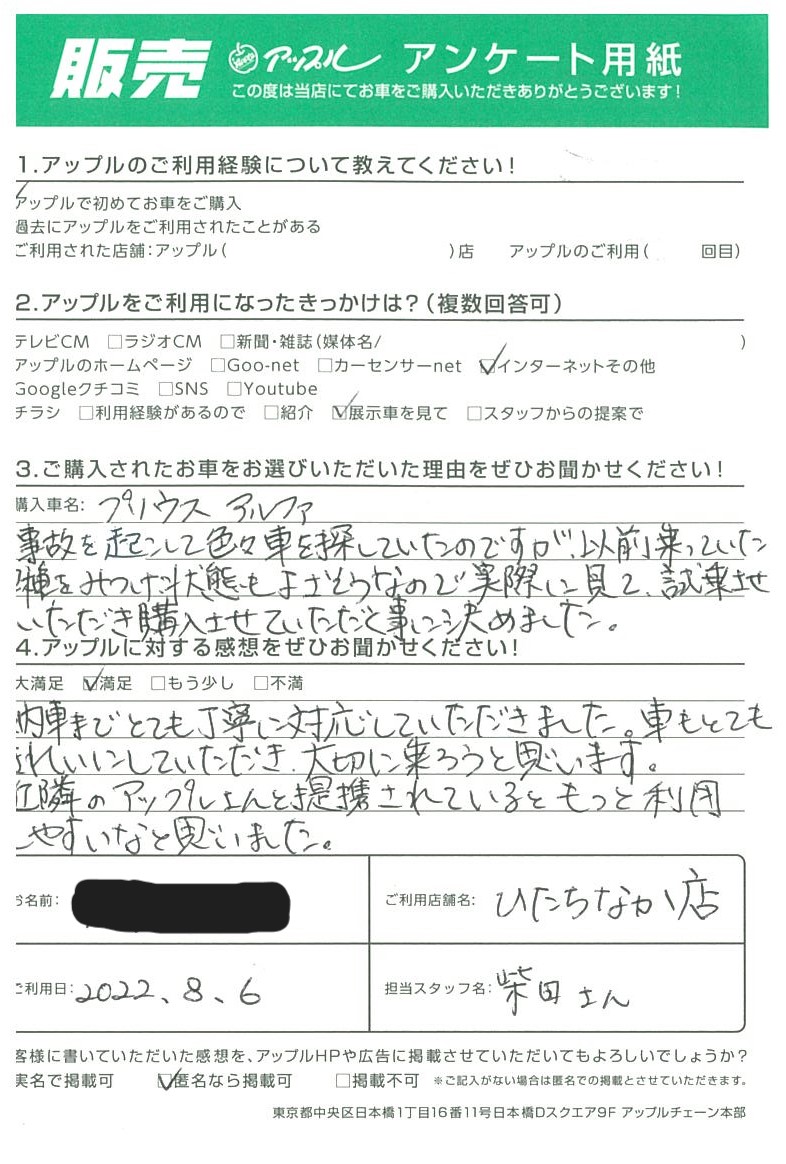 販売 アップル アンケート用紙
この度は当店にてお車をご購入いただきありがとうございます!
1.アップルのご利用経験について教えてください!
アップルで初めてお車をご購入
過去にアップルをご利用されたことがある
ご利用された店舗:アップル( )店 アップルのご利用( 回目)
2.アップルをご利用になったきっかけは?(複数回答可)
テレビCM □ラジオCM □新聞・雑誌(媒体名/ )
アップルのホームページ □Goo-net □カーセンサーnet ☑インターネットその他
Googleクチコミ □SNS □Youtube
チラシ □利用経験があるので □紹介 ☑展示車を見て □スタッフからの提案で
3.ご購入されたお車をお選びいただいた理由をぜひお聞かせください!
購入車名: プリウス アルファ
事故を起こして色々車を探していたのですが、以前乗っていた
種をみつけ状態もよさそうなので実際に見て、試乗させ
いただき購入させていただく事に決めました。
4.アップルに対する感想をぜひお聞かせください!
大満足 ☑満足 □もう少し □不満
納車までとても丁寧に対応していただきました。車もとても
きれいにしていただき、大切に乗ろうと思います。
近隣のアップルさんと提携されているともっと利用
しやすいなと思いました。
お名前: ご利用店舗名: ひたちなか店
ご利用日: 2022、8、6 担当スタッフ名: 柴田さん
客様に書いていただいた感想を、アップルHPや広告に掲載させていただいてもよろしいでしょうか?
実名で掲載可 ☑匿名なら掲載可 □掲載不可 ※ご記入がない場合は匿名での掲載とさせていただきます。
東京都中央区日本橋1丁目16番11号日本橋Dスクエア9F アップルチェーン本部